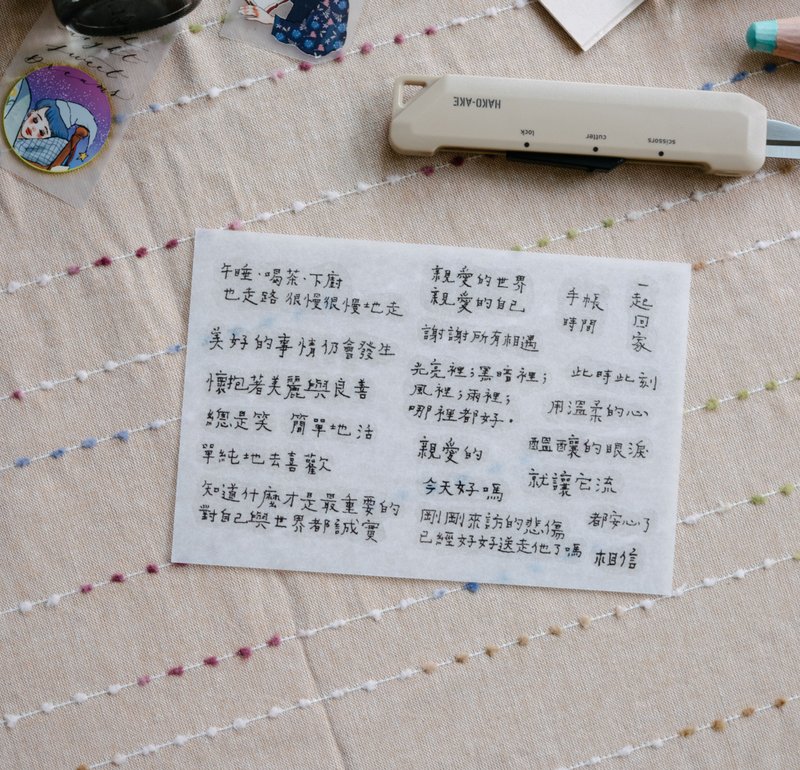 Sweet
Dreams
HAKO-AKE
lock
cutter
scissors
午睡、喝茶、下廚
也走路 很慢很慢地走
美好的事情仍會發生
懷抱著美麗與良善
總是笑 簡單地活
單純地去喜歡
知道什麼才是最重要的
對自己與世界都誠實
親愛的世界
親愛的自己
謝謝所有相遇
光亮裡；黑暗裡；
風裡；雨裡；
哪裡都好。
親愛的
今天好嗎
剛剛來訪的悲傷
已經好好送走他了嗎
手帳
時間
一起回家
此時此刻
用溫柔的心
醞釀的眼淚
就讓它流
都安心了
相信